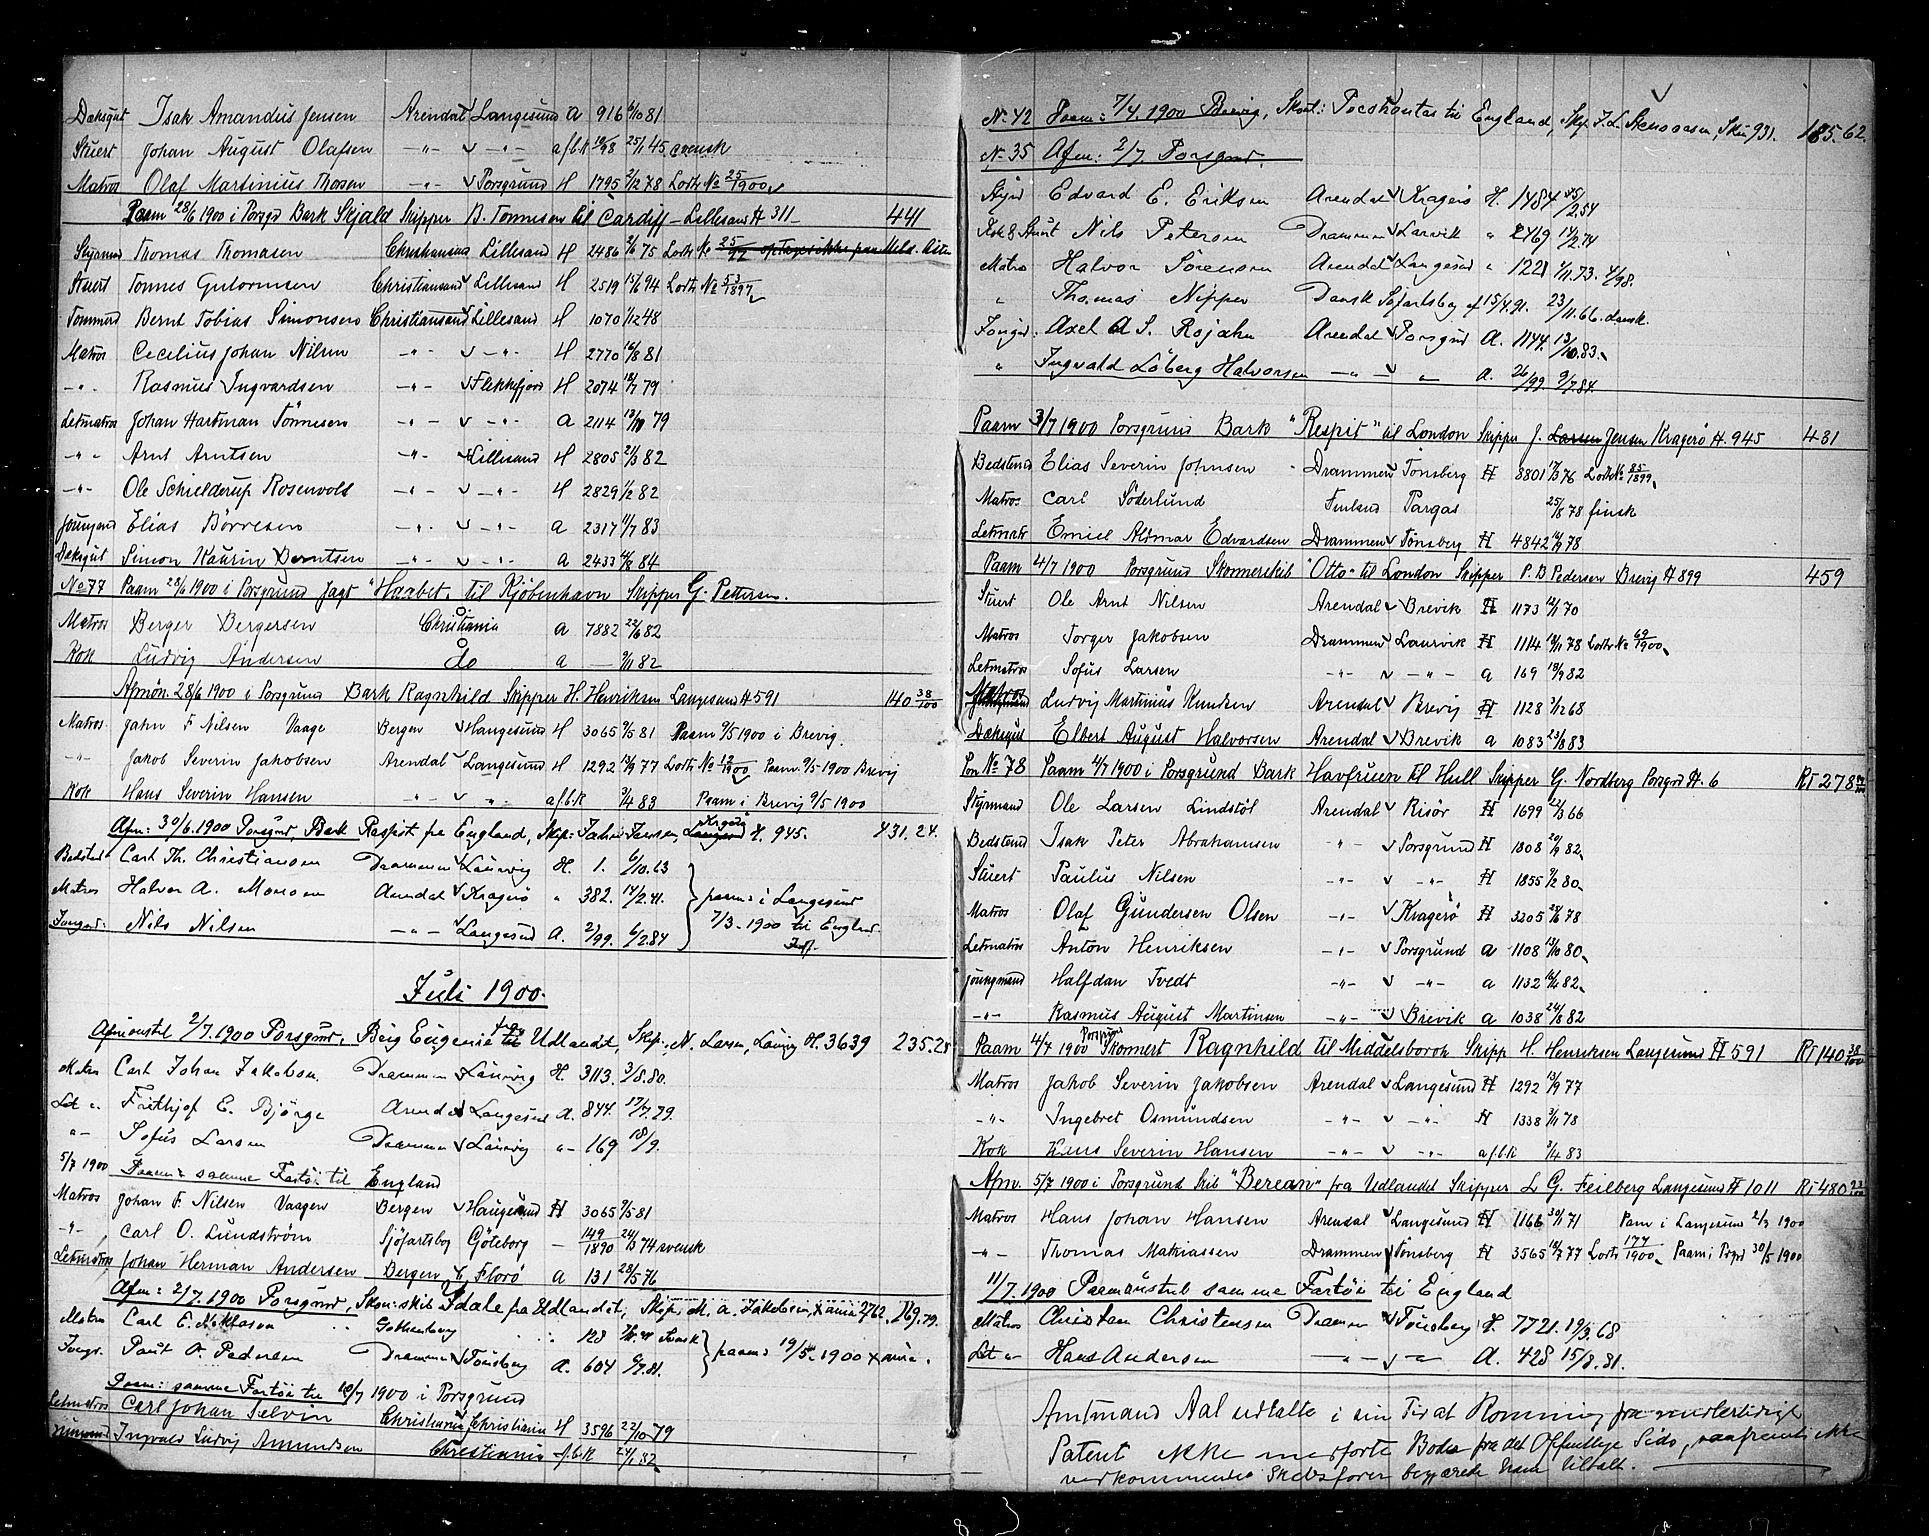 Dæksgut Isak Amandus Jensen Arendal v Langesund A 916 6/10 81
Stuert Johan August Olafsen —"— v —"— afbk 25/1 45 svensk
Matros Olaf Martinius Thorsen —"— v Porsgrund H 1795 2/12 78 Lods No 25/1900
Paam 28/6 1900 i Porsgr Bark Skjald Skipper B. Tønnesen til Cardiff - Lillesand H 311 441
Styrmnd Thomas Thomasen Christiansand Lillesand H 2486 2/6 75
Stuert Tønnes Gutormsen Christiansand v Lillesand H 2519 15/6 74
Tømmerd Bernt Tobias Simonsen Christiansand v Lillesand H 1070 1/12 48
Matros Cecilius Johan Nilsen —"— v —"— H 2770 16/8 81
—"— Rasmus Ingvardsen —"— v Flekkefjord H 2074 18/7 79
Letmatros Johan Hartman Tönnesen —"— v —"— A 2114 13/10 79
—"— Arnt Arntsen —"— v Lillesand H 2805 21/3 82
—"— Ole Schielderup Rosenvold —"— v —"— H 2829 1/2 82
Joungmd Elias Börresen —"— v —"— a 2317 11/7 83
Dæksgut Simon Kaurin Berntsen —"— v —"— a 2433 84
No 77 Paam 28/6 1900 i Porsgrund Jagt "Haabet" til Kjøbenhavn Skipper G. Pettersen.
Matros Berger Bergersen Christiania a 7882 22/6 82
Kok Ludvig Andersen do a — 9/11 82
Afmön. 28/6 1900 i Porsgrund Bark Ragnhild Skipper H. Henriksen Langesund H 591 140 38/100
Matros Jahn F Nilsen Vaage Bergen v Haugesund H 3065 9/5 81 Paam 9/5 1900 i Brevig.
—"— Jakob Severin Jakobsen Arendal v Langesund H 1292 13/9 77 Lods No 12/1900 Paam. 9/5 1900 Brevig
Kok Hans Severin Hansen —"— v —"— afbk 3/4 83 Paam i Brevig 9/5 1900
Afm: 30/6 1900 Porsgrd, Bark Respit fra England, Skip: Jahn Jensen, Kragerö H. 945. 431.24.
Bedstmd Carl Th. Christiansen Drammen v Laurvig H. 1. 6/10.63
Matros Halvor A. Monsen Arendal v Kragerö " 382. 14/2.41. paam: i Langesund
Jungmd: Nils Nilsen —"— v Langesund A. 2/99. 6/2.84 7/3-1900 til England
Juli 1900.
Afmönstret 2/7. 1900 Porsgrund, Brig Eugenie fra Udlandet, Skip: N. Larsen, Laurvig H. 3639 235.28
Matros Carl Johan Jakobsen. Drammen v Laurvig H. 3113. 3/8.80.
Let " Frithjof E. Bjørge Arendal v Langesund A. 844. 17/7.79.
" — Sofus Larsen Drammen v Laurvig " — 169 18/9.
5/7 1900 Paam: samme Fartöi til England
Matros Johan F. Nilsen Vaagen Bergen v Haugesund H 3065 9/5 81
—"— Carl O. Lundström Sjöfartsbog Göteborg — 149/1890 24/3 74 svensk
Letmatros Johan Herman Andersen Bergen v Florø A 131 28/5 76
Afm: 2/7. 1900 Porsgrund, Skon: skib Ydale fra Udlandet, Skip: M. A. Jakobsen, Xania 2762. 269.79.
Matros Carl E. Göthenborg 128 svensk
Jungm. Paul A. Pedersen Drammen v Tönsberg A. 604 6/7.81. paam: 19/5-1900 Xania.
Paam: samme Fartöi til 10/7 1900 i Porsgrund
Letmatros Carl Johan Selvin Christiania v Christiania H 3596 22/10 79
Ingvald Ludvig Amundsen Christiania f.b.k 24/1 82
No. 42 Paam: 7/4. 1900 Brevig, Skont: Pocohontas til England, Skip. 185.62.
No. 35 Afm: 2/7 Porsgrund.
Styrmd Edvard E. Eriksen Arendal v Kragerö H. 1484 2.54
Kok & Stuert Nils Petersen Drammen v Larvik " 2469 14/2.74
Matros Halvor Sörensen Arendal v Langesund " 1221 4/11.73. 4/98.
" Thomas Nipper Dansk Søfartsbog af 15/4.91. 23/11.66. dansk.
Jungmd. Axel A S. Rojahn Arendal v Porsgrund A. 1144. 13/10.83.
" Ingvald Löberg Halvorsen —"— v " — A. 26/99 9/7.84.
Paam 3/7 1900 Porsgrund Bark "Respit" til London Skipper J. Larsen Jensen Kragerø H. 945 431
Bedstemd Elias Severin Johnsen - Drammen v Tønsberg H 3801 17/3 76 Lods No 85/1899
Matros Carl Söderlund Finland Pargas 25/8 78 finsk
Letmatr Emiel Aldmar Edvardsen Drammen v Tønsberg H 4842 78
Paam 4/7 1900 Porsgrund Skonnerskib "Otto" til London Skipper P. B Pedersen Brevig H 899 459
Stuert Ole Arnt Nilsen Arendal v Brevik H 1173 12/1 70
Matros Torger Jakobsen Drammen v Laurvik H 1114 14/11 78 Lods No 69/1900
Letmatros Sofus Larsen —"— v —"— a 169 18/9 82
Ludvig Martinius Knudsen Arendal v Brevig H 1128 3/12 68
Dæksgut Elbert August Halvorsen Arendal v Brevik a 1083 23/8 83
No 78 Paam 4/7 1900 i Porsgrund Bark Havfruen til Hull Skipper G. Nordberg Porsgrd H. 6 RT 278
Styrmand Ole Larsen Lindstöl Arendal v Risör H 1699 66
Bedstemd Isak Peter Abrahamsen —"— v Porsgrund H 1808 20/9 82
Stuert Paulus Nilsen —"— v —"— H 1855 9/2 80
Matros Olaf Gundersen Olsen —"— v Kragerö H 3205 28/6 78
Letmatros Anton Henriksen —"— v Porsgrund a 1108 13/10 80
Joungmand Halfdan Tvedt —"— v —"— a 1132 82
—"— Rasmus August Martinsen —"— v Brevik a 1038 24/8 82
Paam 4/7 1900 Porsgrund Skonnert Ragnhild til Middelsboroh Skipp H. Henriksen Langesund H 591 RT 140 38/100
Matros Jakob Severin Jakobsen Arendal v Langesund H 1292 13/9 77
—"— Ingebret Osmundsen —"— v —"— H 1338 3/11 78
Kok Hans Severin Hansen —"— v —"— afbk 3/4 83
Afm. 5/7 1900 i Porsgrund Skib "Berean" fra Udlandet Skipper L G. Feilberg Langesund H 1011 RT 480 23/100
Matros Hans Johan Hansen Arendal v Langesund H 1166 30/11 71 Pam i Langesund 2/3 1900
—"— Thomas Mathiassen Drammen v Tønsberg H 3565 18/7 77 Lods 177/1900 Paam i Prgrd 30/5 1900
11/7. 1900 Paamönstret samme Fartöi til England
Matros Christen Christensen Drammen v Tönsberg H. 7721. 19/3.68
Let " — Hans Andersen —"— v " — A. 428 15/8.81.
Amtmand Aal udtalte i sin Tid at Rømning fra midlertidigt
Patent ikke medførte Bøder fra det Offentlige Side, saafremt ikke
vedkommende Skibsfører begjærede ham tiltalt.